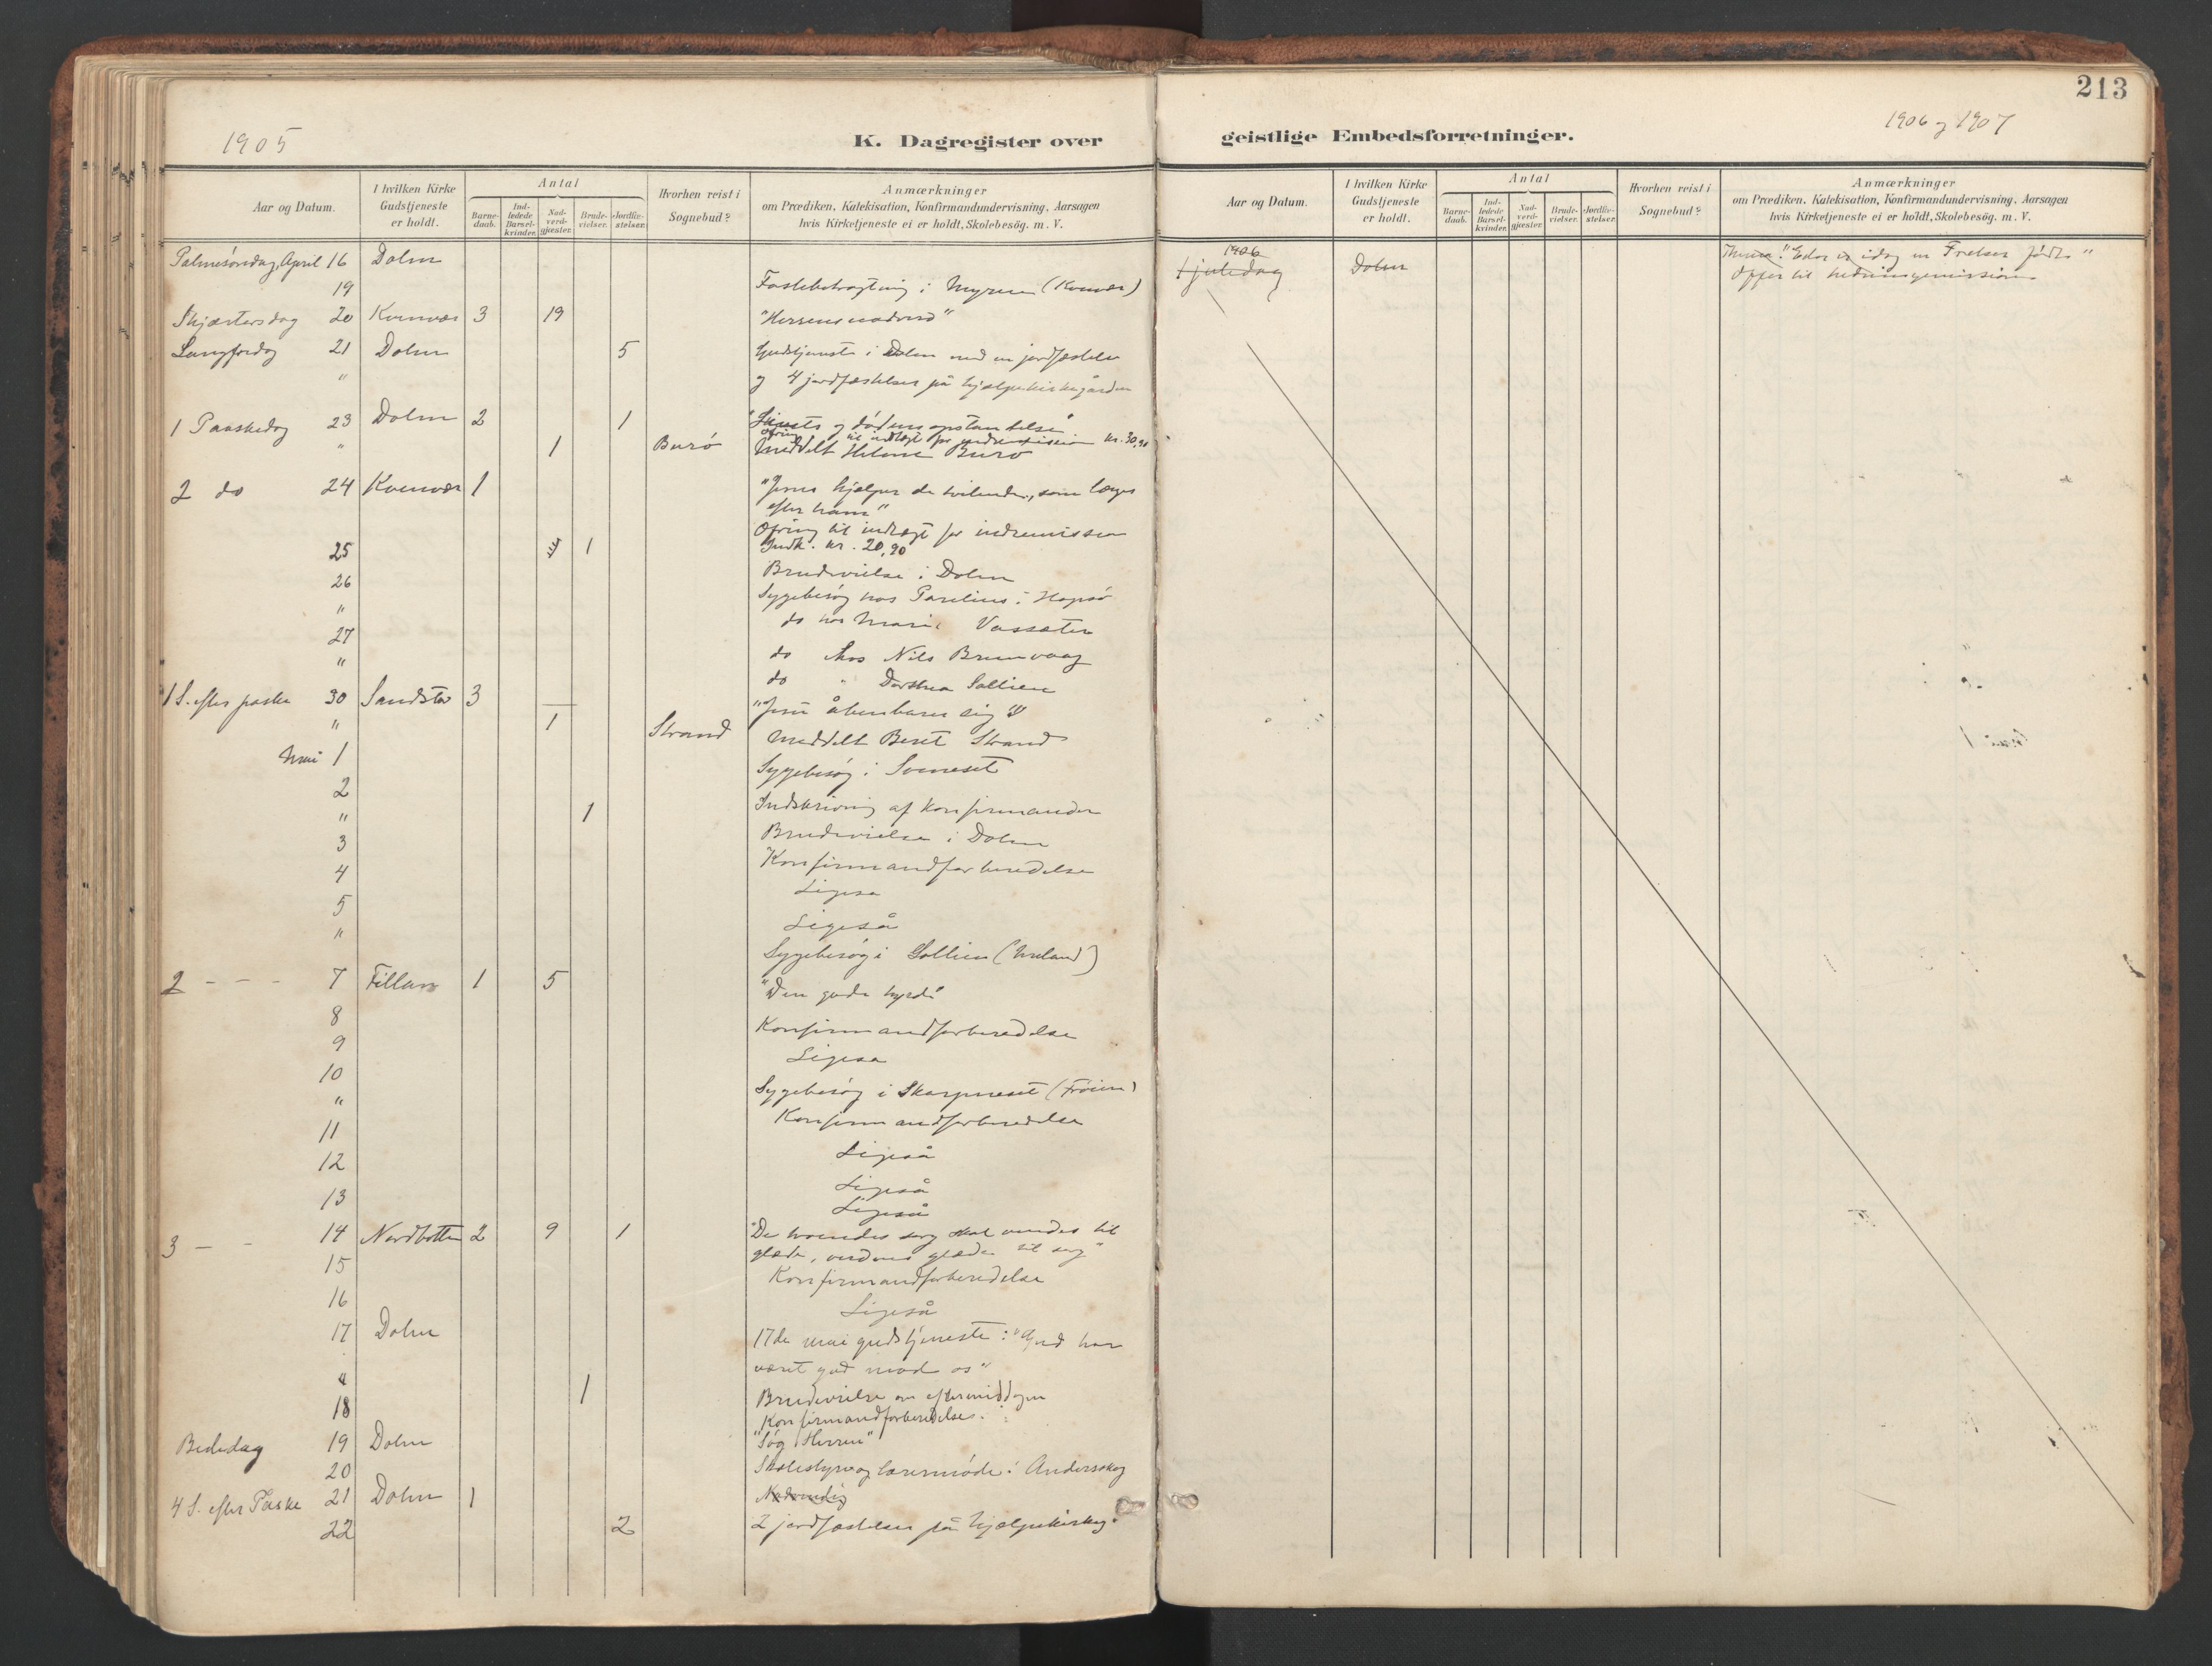 1905
K. Dagregister over
Aar og Datum.
I hvilken Kirke Gudstjeneste er holdt.
Antal
Barnedaab.
Indledede Barselkvinder.
Nadverdgjæster.
Brudevielser.
Jordfæstelser.
Hvorhen reist i Sognebud?
Anmærkninger
om Prædiken, Katekisation, Konfirmandundervisning, Aarsagen
hvis Kirketjeneste ei er holdt, Skolebesög. m. V.
Palmesöndag, April 16 Dolm
19 Fastebetragtning i Myren (Kvenvær)
Skjærtorsdag 20 Kvenvær 3 19 "Herrens nadverd"
Langfredag 21 Dolm 5 Gudstjeneste i Dolm med en jordfæstelse
" og 4 jordfæstelser på hjælpekirkegården
1 Paaskedag 23 Dolm 2 1 og dødens opstandelse
Ofring til indtægt for indremission kr. 30,90
" 1 Burö Meddelt Helene Burö
2 do 24 Kvenvær 1 "Jesus hjælper de tvilende, som længes
efter ham"
Ofring til indtægt for indremission
Indk. kr. 20,90
25 1 Brudevielse i Dolm
26 Sygebesøg hos Parelius i Hopsö
" do hos Marie Vassæter
27 do hos Nils Bremvaag
" do " Dorthea Sollien
1 S. efter paske 30 Sandstad 3 "Jesu åbenbarer sig"
" 1 Strand Meddelt Beret Strand
Mai 1 Sygebesøg i
2 Indskrivning af konfirmander
" 1 Brudevielse i Dolm
3 Konfirmandforberedelse
4 Ligesa
5 Ligeså
" Sygebesøg i Sollien
2 - - - 7 Fillan 1 5 "Den gode hyrde"
8 Konfirmandforberedelse
9 Ligesa
10 Sygebesøg i Skarpneset (Fröien)
" Konfirmandforberedelse
11 Ligeså
12 Ligeså
13 Ligeså
3 - - 14 Nordbotten 2 9 1 "De troendes sorg skal vendes til
glæde, verdens glæde til sorg"
15 Konfirmandforberedelse
16 Ligeså
17 Dolm 17de mai gudstjeneste: "Gud har
været god mod os"
" 1 Brudevielse om eftermiddagen
18 Konfirmandforberedelse.
Bededag 19 Dolm "Søg Herren"
20 Skolestyre og læremøde i Andersskog
4 S. efter Paske 21 Dolm 1
22 2 2 jordfæstelser på hjælpekirkeg.
213
1906 og 1907
geistlige Embedsforretninger.
Aar og Datum.
I hvilken Kirke Gudstjeneste er holdt.
Antal
Barnedaab.
Indledede Barselkvinder.
Nadverdgjæster.
Brudevielser.
Jordfæstelser.
Hvorhen reist i Sognebud?
Anmærkninger
om Prædiken, Katekisation, Konfirmandundervisning, Aarsagen
hvis Kirketjeneste ei er holdt, Skolebesög. m. V.
1906
1 juledag Dolm "Eder er idag en Frelser født"
Offer til hedningemissionen